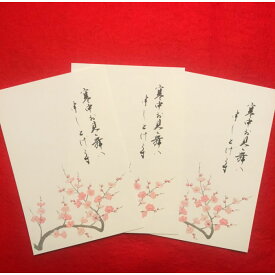 寒中お見舞い
申し上げます
寒中お見舞い
申し上げます
寒中お見舞い
申し上げます